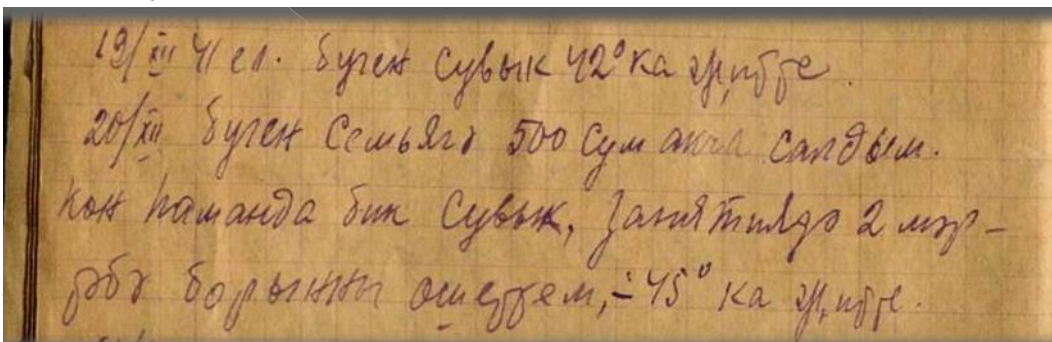 19/XII 41 ел. Бүген сувык 42° ка җитте.
20/XII Бүген семьягә 500 сум акча салдым.
Көн һаманда бик сувык, занятиядә 2 мәр-
тәбә борынны өшеттем, -45° ка җитте.